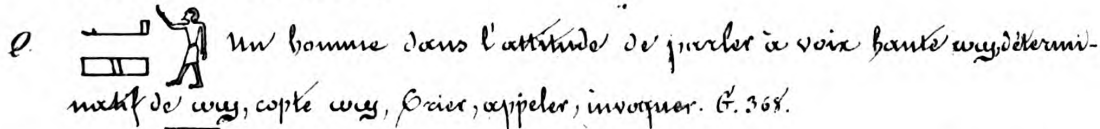 Un homme dans l'attitude de parler à voix haute ⲱϣ, détermi-
natif de ⲱϣ, copte ⲱϣ, Crier, appeler, invoquer. G. 368.